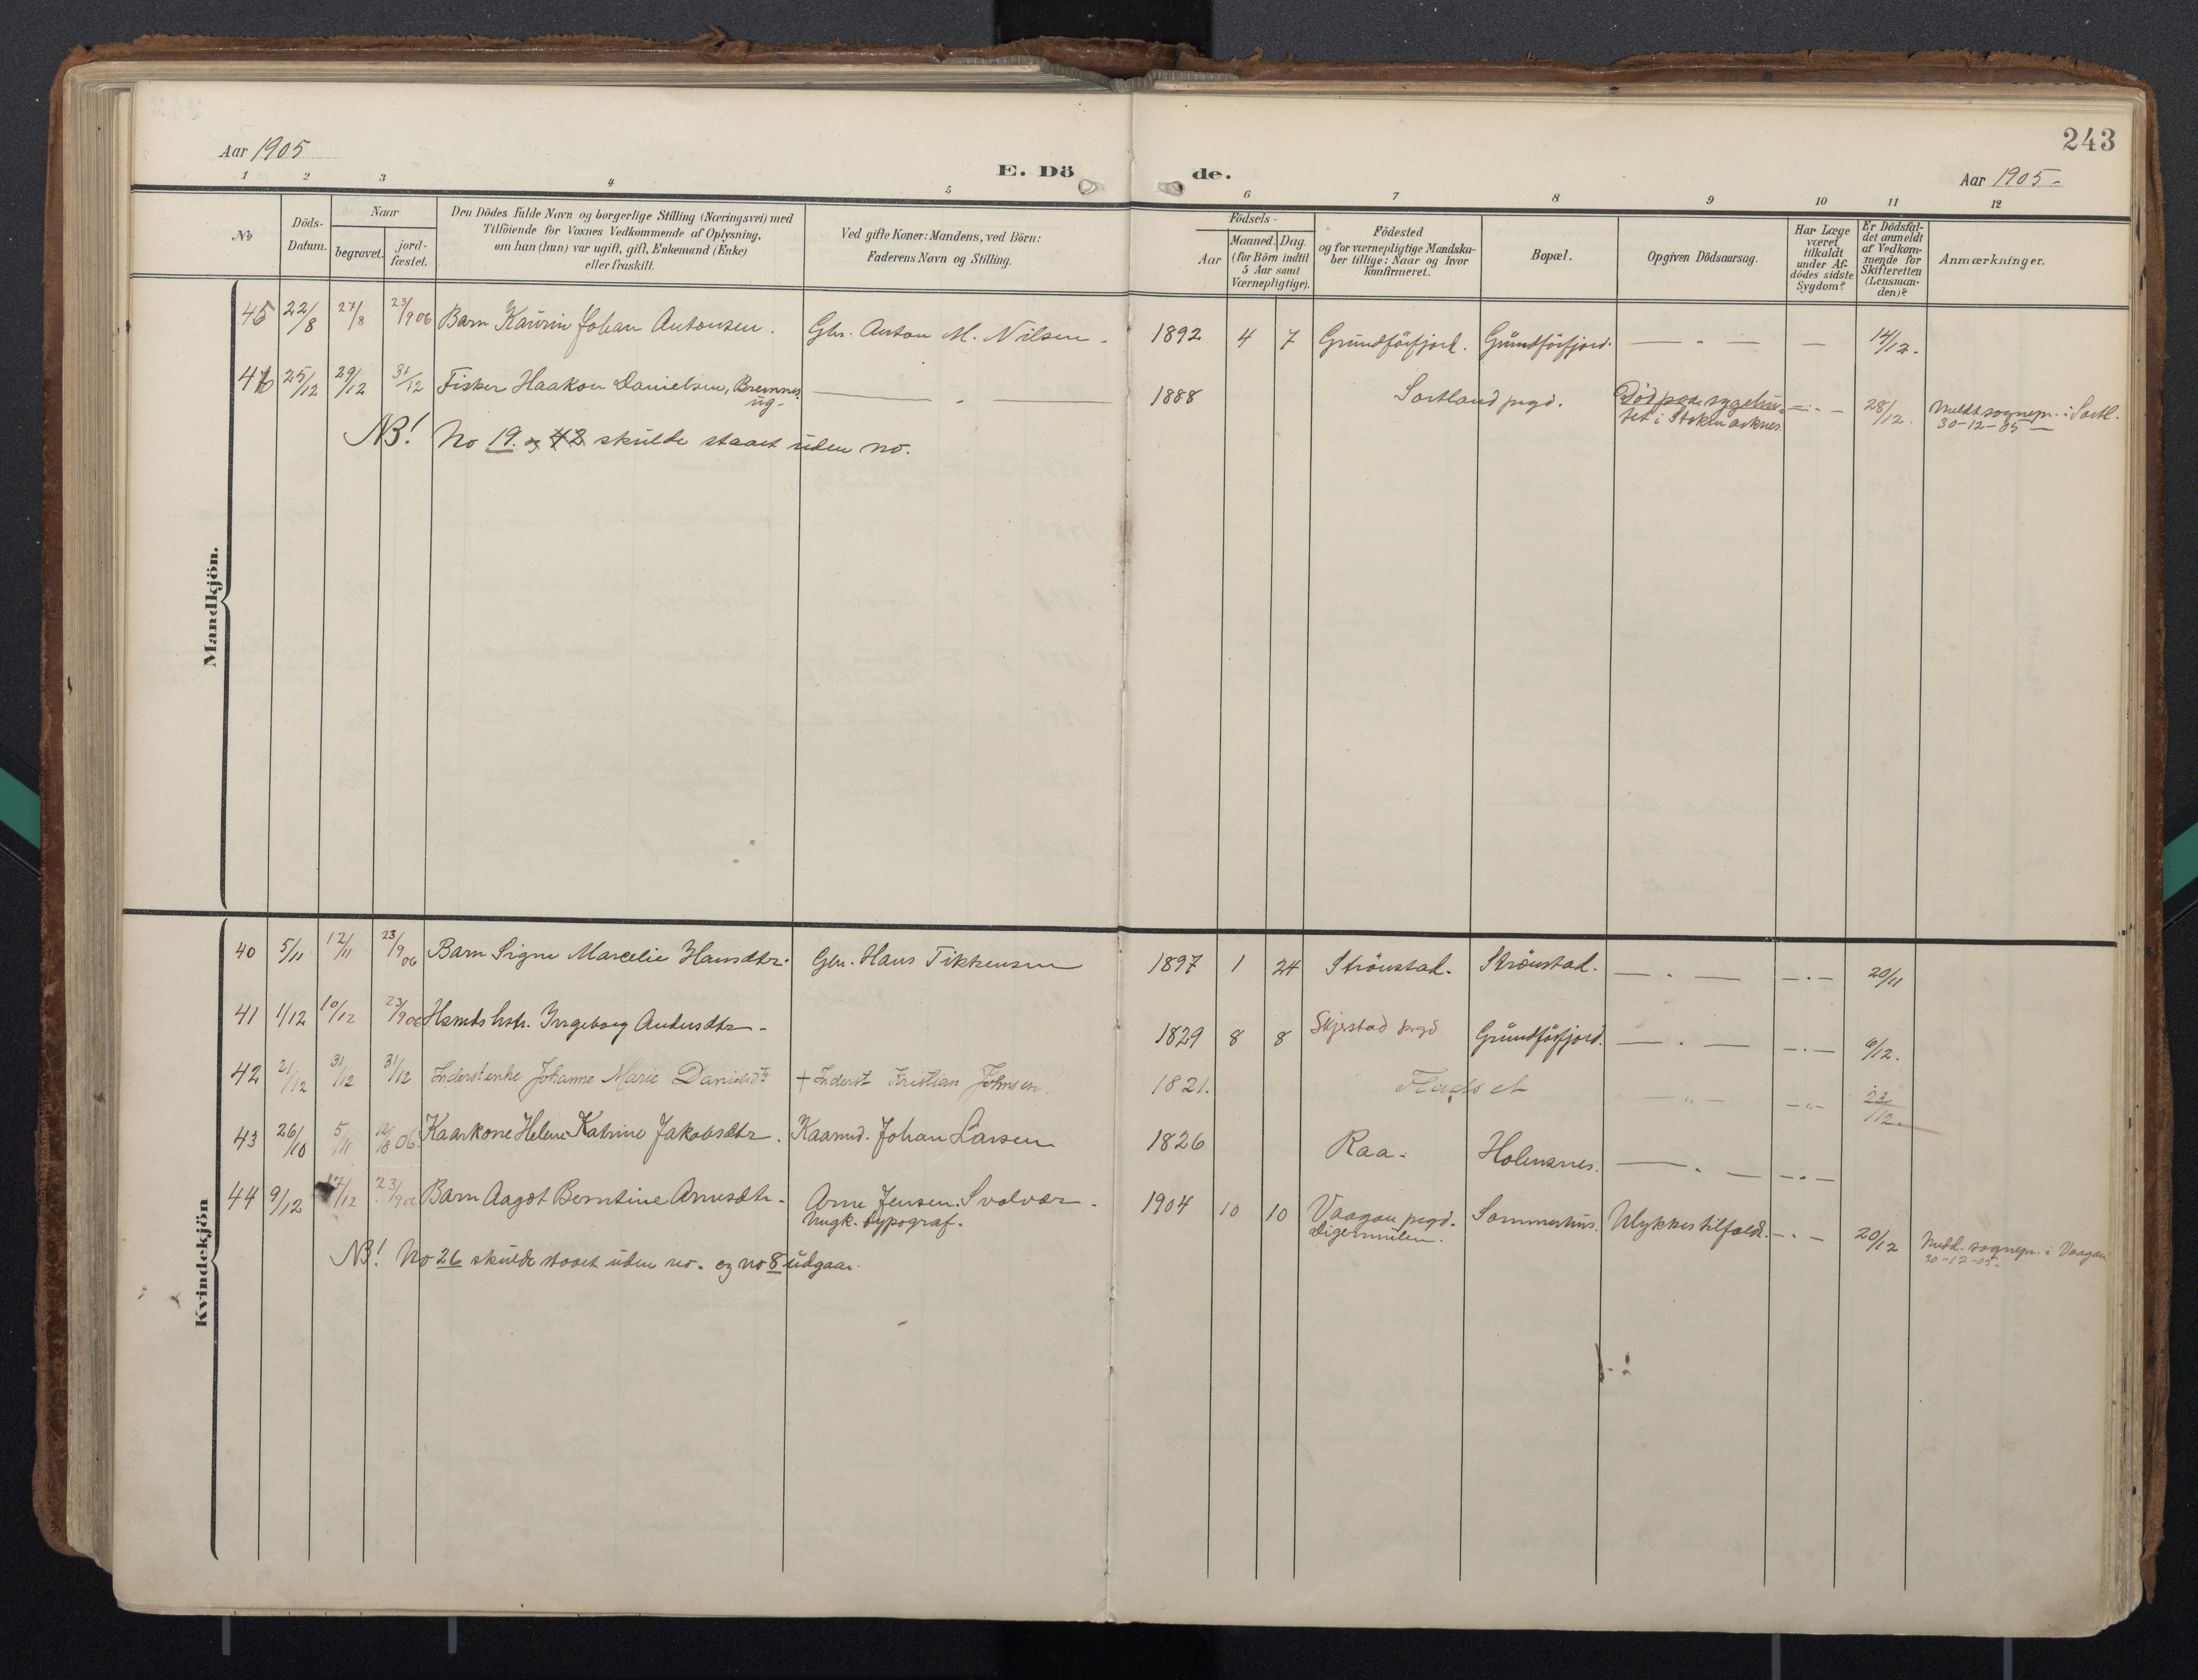 243
Aar 1905
E. Dö de.
Aar 1905-
1 2 3 4 5 6 7 8 9 10 11 12
No
Döds-
Datum.
Naar
begravet.
jord-
fæstet.
Den Dödes fulde Navn og borgerlige Stilling (Næringsvei) med
Tilföiende for Voxnes Vedkommende af Oplysning,
om han (hun) var ugift, gift, Enkemand (Enke)
eller fraskilt.
Ved gifte Koner: Mandens, ved Börn:
Faderens Navn og Stilling.
Födsels-
Aar
Maaned. Dag.
(for Börn indtil
5 Aar samt
Værnepligtige).
Födested
og for værnepligtige Mandska-
ber tillige: Naar og hvor
konfirmeret.
Bopæl.
Opgiven Dödsaarsag.
Har Læge
været
tilkaldt
under Af-
dödes sidste
Sygdom?
Er Dödsfal-
det anmeldt
af Vedkom-
mende for
Skifteretten
(Lensman-
den)?
Anmærkninger.
Mandkjön.
45 22/8 27/8 23/9 06 Barn Kaurin Johan Antonsen. Gbr. Anton M. Nilsen - 1892 4 7 Grundförfjord. Grundförfjord. — " — — 14/12.
46 25/12 29/12 31/12 Fisker Haakon Danielsen, Bremnes — " — 1888 Sortland prgd. Död paa sygehu- — " — 28/12. Meldt sognepr. i Sortl.
ug- set i Stokmarknes. 30-12-05 —
NB! No 19. og 42 skulde staaet uden no.
Kvindekjön
40 5/11 12/11 23/9 06 Barn Signe Marcelie Hansdtr. Gbr. Hans Tikkensen 1897 1 24 Strönstad. Strönstad. — " — — " — 20/11
41 1/12 10/12 23/9 06 Hsmds hstr. Ingeborg Andersdtr - 1829 8 8 Skjerstad prgd. Grundförfjord. — " — — " — 6/12.
42 21/12 31/12 31/12 Inderstenke Johanne Marie Danielsdtr + Inderst Kristian Johnsen. 1821. Fladset — " — — " — 23/12.
43 26/10 5/11 12/8 06. Kaarkone Helene Katrine Jakobsdtr. Kaarmd. Johan Larsen 1826 Raa. Holmsnes. — " — — " —
44 9/12 17/12 23/9 06 Barn Aagot Berntine Arnesdtr - Arne Jensen. Svolvær - 1904 10 10 Vaagan prgd. Sommerhus. Ulykkestilfælde. — " — 20/12 Medd. sognepr. i Vaagan
Ungk. typograf. Digermulen. 30-12-05.
NB! No 26 skulde staaet uden no. og no 8 udgaar.